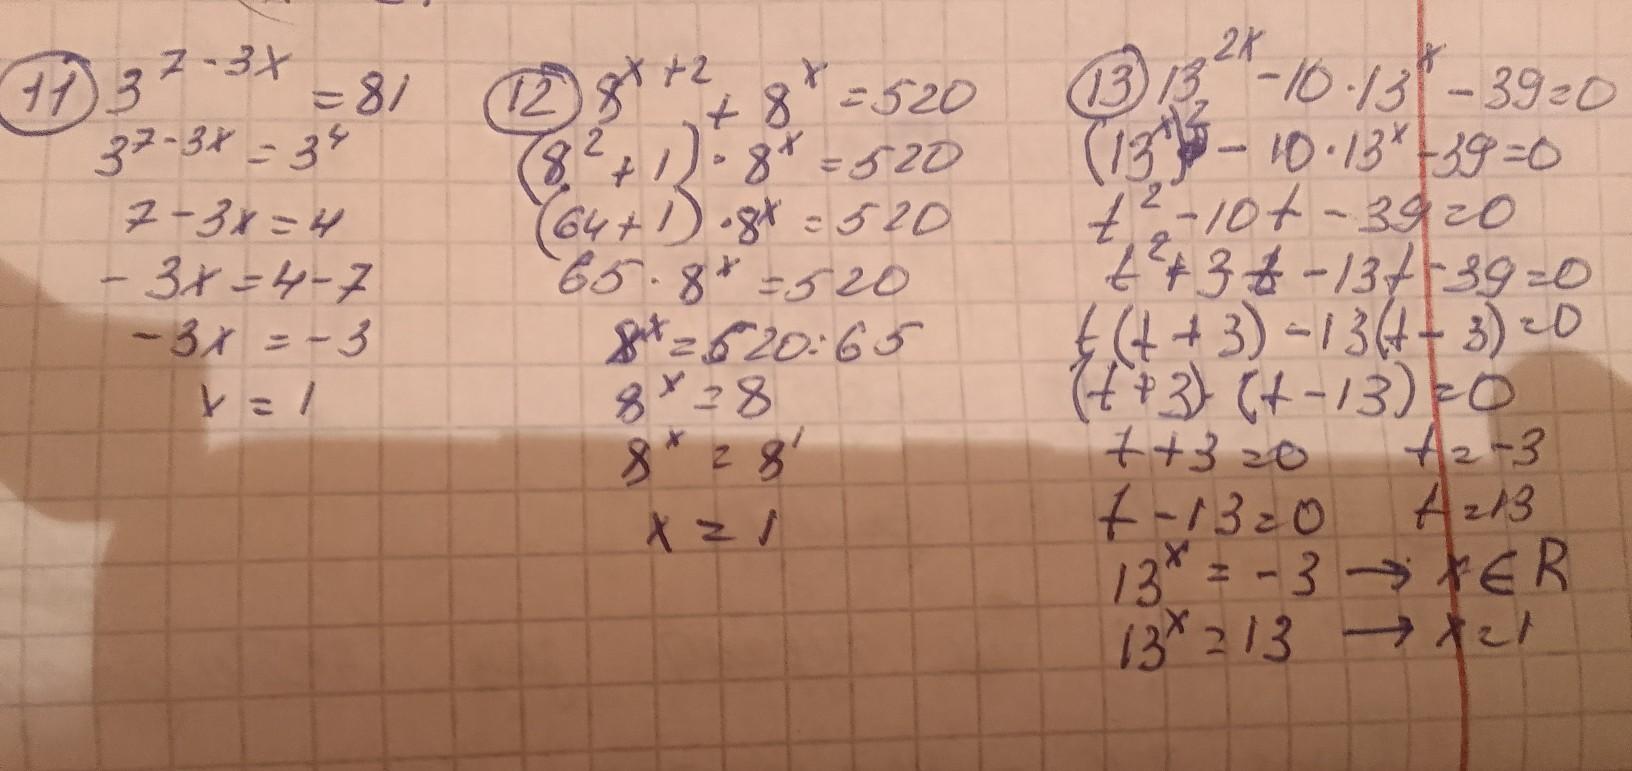 11) 3^{7-3x} = 81
3^{7-3x} = 3^4
7-3x=4
-3x=4-7
-3x=-3
x=1
12) 8^{x+2} + 8^x = 520
(8^2+1)·8^x=520
(64+1)·8^x=520
65·8^x=520
8^x=520:65
8^x=8
8^x=8^1
x=1
13) 13^{2x}-10·13^x-39=0
(13^x)^2-10·13^x-39=0
t^2-10t-39=0
t^2+3t-13t-39=0
t(t+3)-13(t-3)=0
(t+3)·(t-13)=0
t+3=0 t=-3
t-13=0 t=13
13^x=-3 → x∈R
13^x=13 → x=1